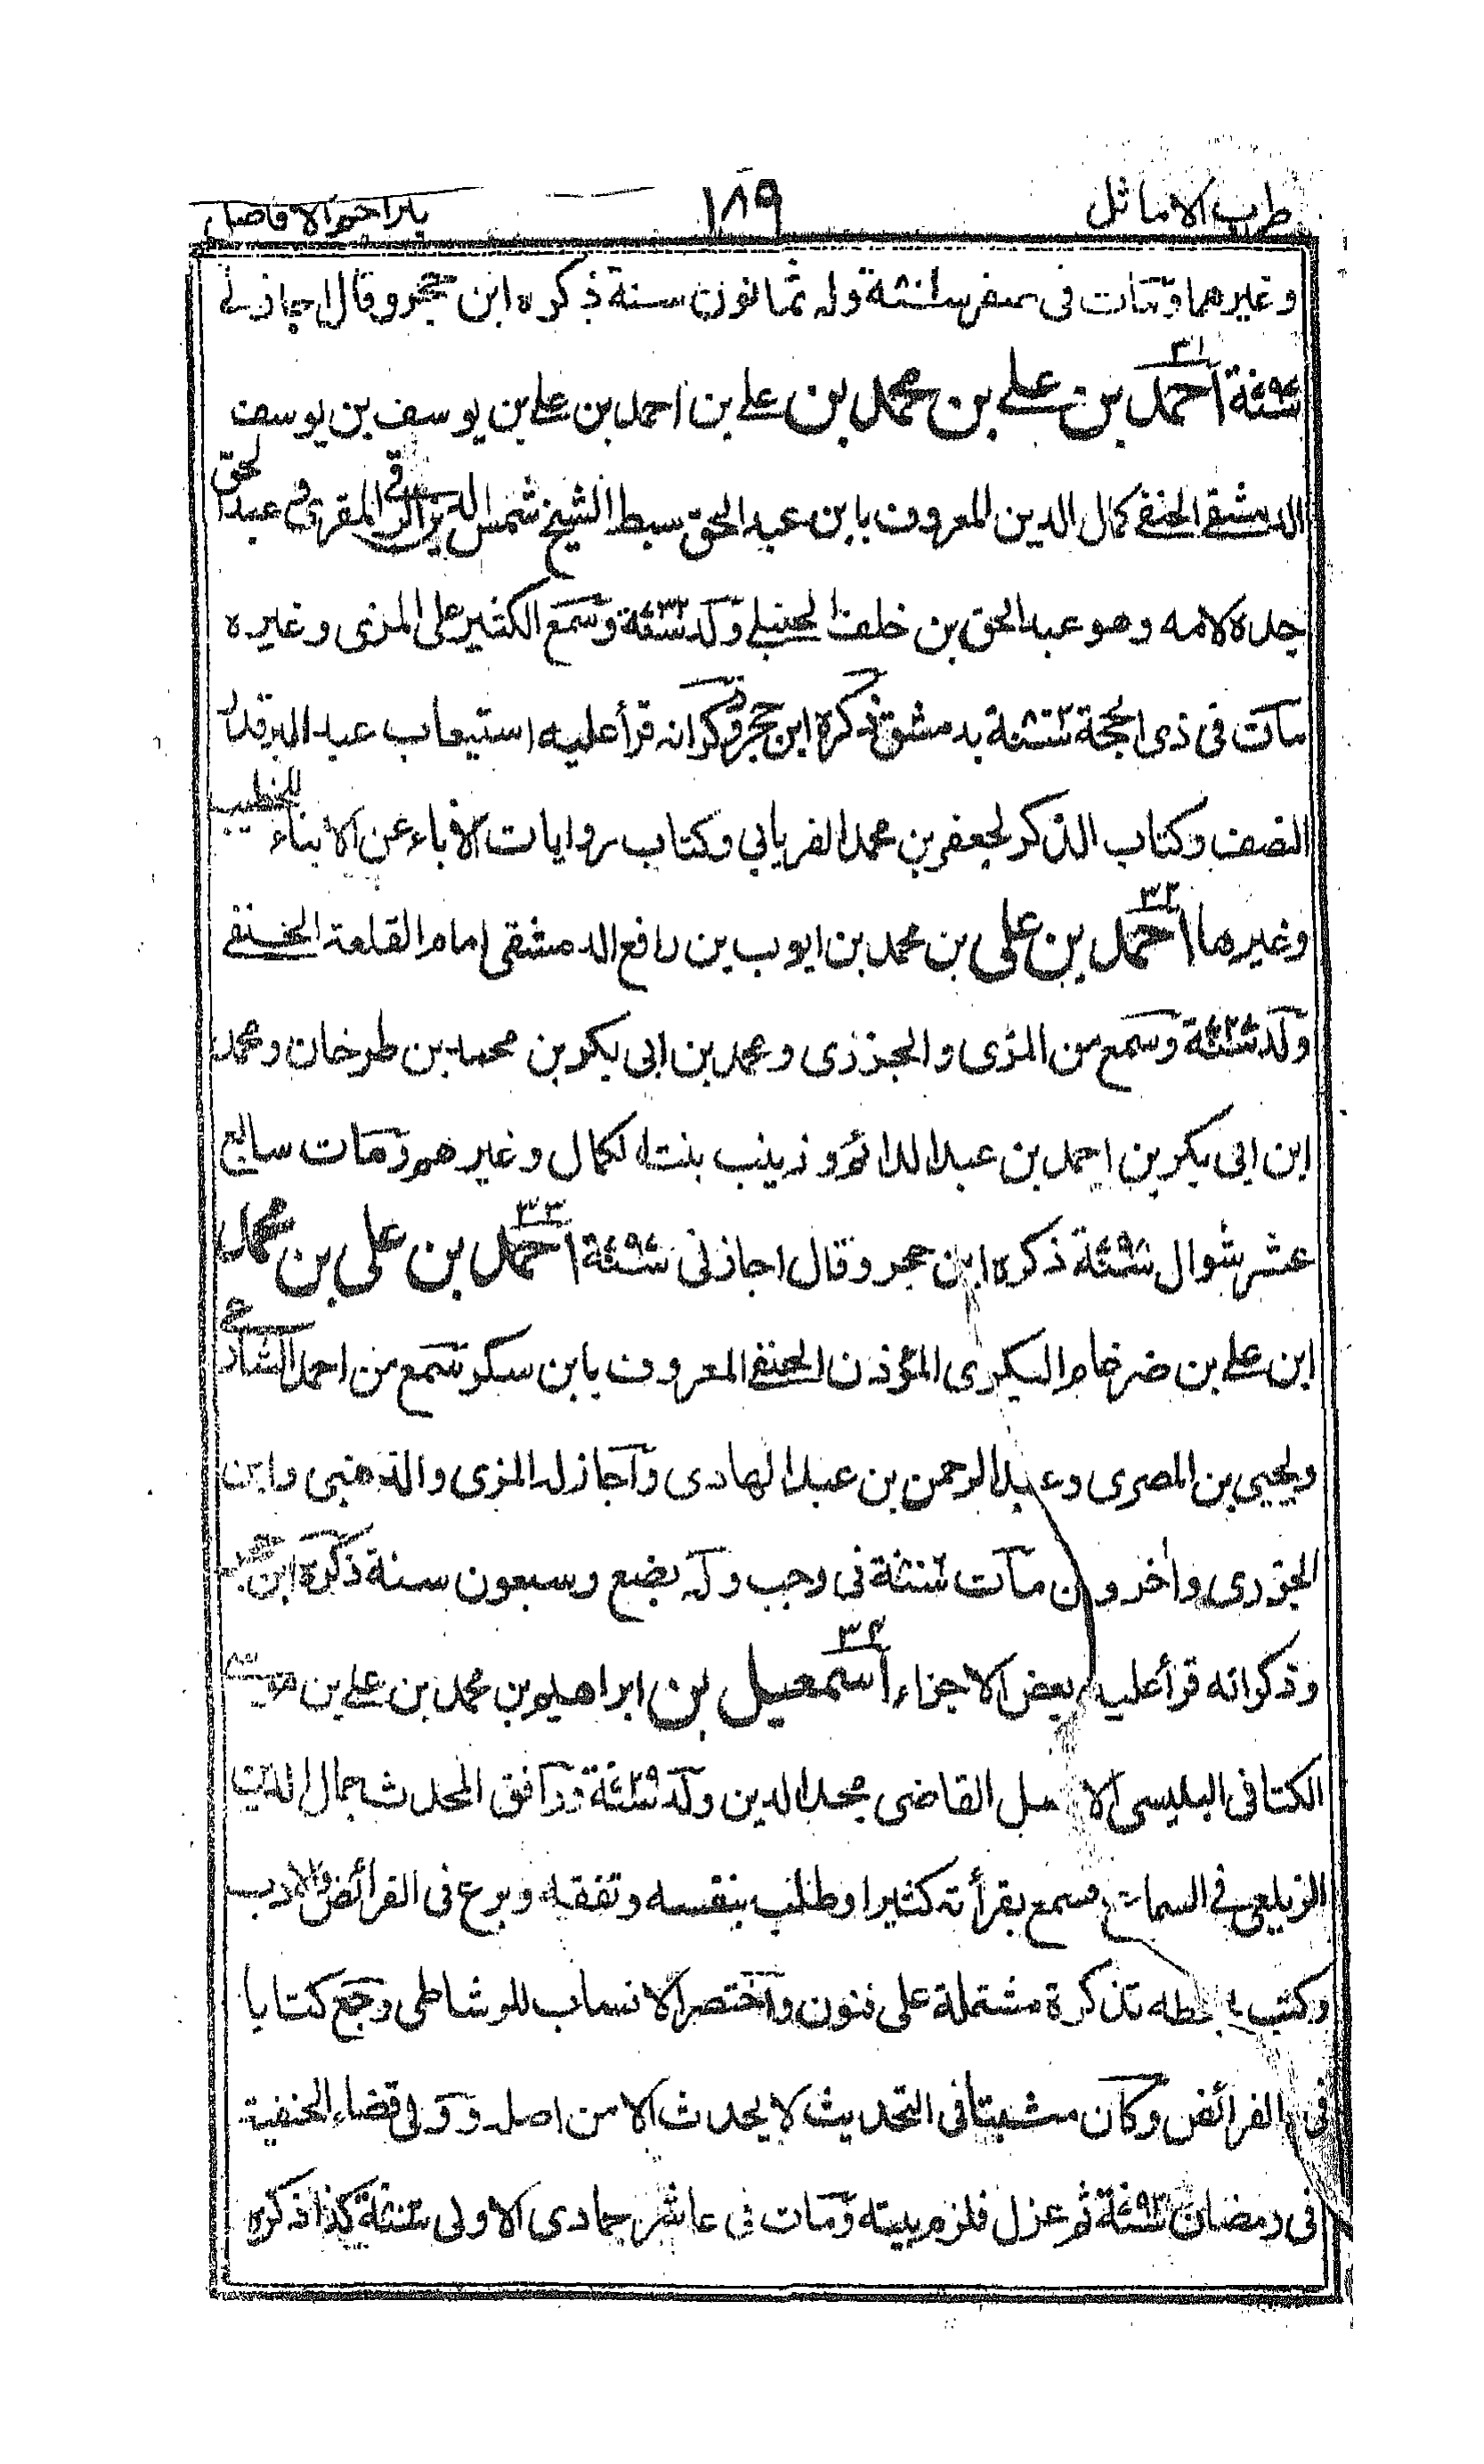 طرب الاماثل ١٨٩ بتراجم الافاضل
وغيرهما ومات فى صفر سنة وله ثمانون سنة ذكره ابن حجر وقال اجاز لے
٣١
سنة ٧٩٧ احمد بن علے بن محمد بن علے بن احمد بن علے بن يوسف بن يوسف
الدمشقے الحنفے كمال الدين المعروف بابن عبد الحق سبط الشيخ شمس الدين الرقى المقرى و عبد الحق
جده لامه وهو عبد الحق بن خلف الحنبلے ولد سنة ٧٣٢ وسمع الكثير على المزى وغيره
مات فى ذى الحجة سنة بدمشق ذكره ابن حجر وذكر انه قرأ عليه استيعاب عبد البر قدر
النصف وكتاب الذكر لجعفر بن محمد الفريابي وكتاب روايات الاٰباء عن الابناء للخطيب
٣٢
وغيرهما احمد بن على بن محمد بن ايوب بن رافع الدمشقى امام القلعة الحنفے
ولد سنة وسمع من المزى والجزرى ومحمد بن ابى بكر بن محمد بن طرخان ومحمد
ابن ابى بكر بن احمد بن عبد الدائم و زينب بنت الكمال وغيرهم ومات سابع
٣٣
عشر شوال سنة ٧٩٨ ذكره ابن حجر وقال اجاز لى سنة ٧٩٧ احمد بن على بن محمد
ابن علے بن ضرغام البكرى المؤذن الحنفے المعروف بابن سكر سمع من احمد
ويحيى بن المصرى وعبد الرحمن بن عبد الهادى واجاز له المزى والذهبى وابن
الجزرى واٰخرون مات سنة فى رجب وله بضع وسبعون سنة ذكره ابن حجر
٣٤
وذكر انه قرأ عليه بعض الاجزاء اسمعيل بن ابراهيم بن محمد بن علے بن موسے
الكنانى البلبيسى الاصل القاضى مجد الدين ولد سنة ٧٢٩ ورافق المحدث جمال الدين
الزيلعى فى السماع وسمع بقرأته كثيرا وطلب بنفسه وتفقه وبرع فى الفرائض والادب
وكتب بخطه تذكرة مشتملة على فنون واختصر الانساب للرشاطى وجمع كتابا
فى الفرائض وكان متثبتا فى التحديث لا يحدث الا من اصله وولى قضاء الحنفية
فى رمضان سنة ٧٩٢ ثم عزل فلزم بيته ومات فى عاشر جمادى الاولى سنة كذا ذكره